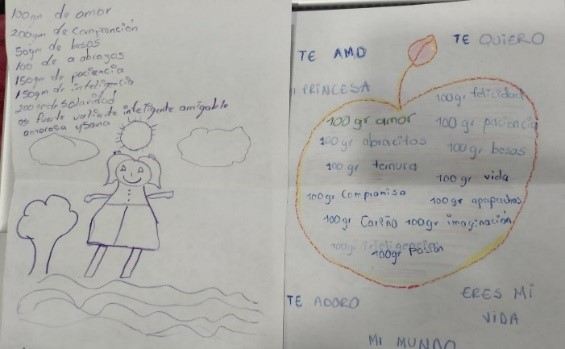 100gm de amor
200gm de Comprención
50gm de besos
100 de a abrazos
150gm de paciencia
150gm de inteligencia
es fuerte valiente inteligente amigable
amorosa y sana
TE AMO
TE QUIERO
PRINCESA
100gr felicidad
100gr amor
100gr paciencia
100gr abracitos
100gr besos
100gr ternura
100gr vida
100gr Compromiso
100gr apapachos
100gr Cariño
100gr imaginación
100gr Inteligencia
100gr Pasión
TE ADORO
ERES MI
VIDA
MI MUNDO